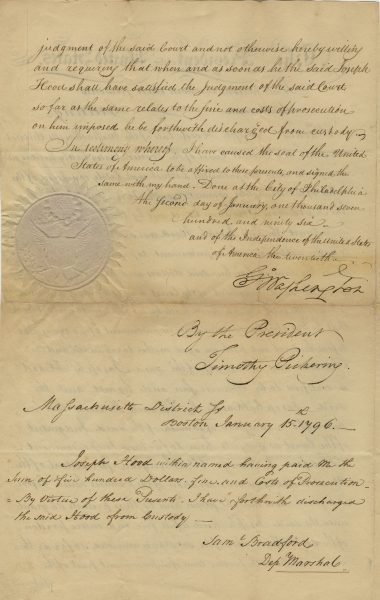 judgment of the said Court and not otherwise hereby willing
and requiring that when and as soon as he the said Joseph
Hood shall have satisfied the Judgment of the said Court
so far as the same relates to the fine and costs of prosecution
on him imposed he be forthwith discharged from custody.
In testimony whereof I have caused the seal of the United
States of America to be affixed to these presents, and signed the
same with my hand. Done at the City of Philadelphia
the second day of January, one thousand seven
hundred and ninety six
and of the Independence of the united States
of America the twentieth.
Go. Washington
By the President
Timothy Pickering.
Massachusetts District Ss
Boston January 15th 1796.
Joseph Hood within named having paid me the
Sum of five hundred Dollars fine and Costs of Prosecution
By Virtue of these Presents, I have forthwith discharged
the said Hood from Custody
Saml Bradford
Depy Marshal